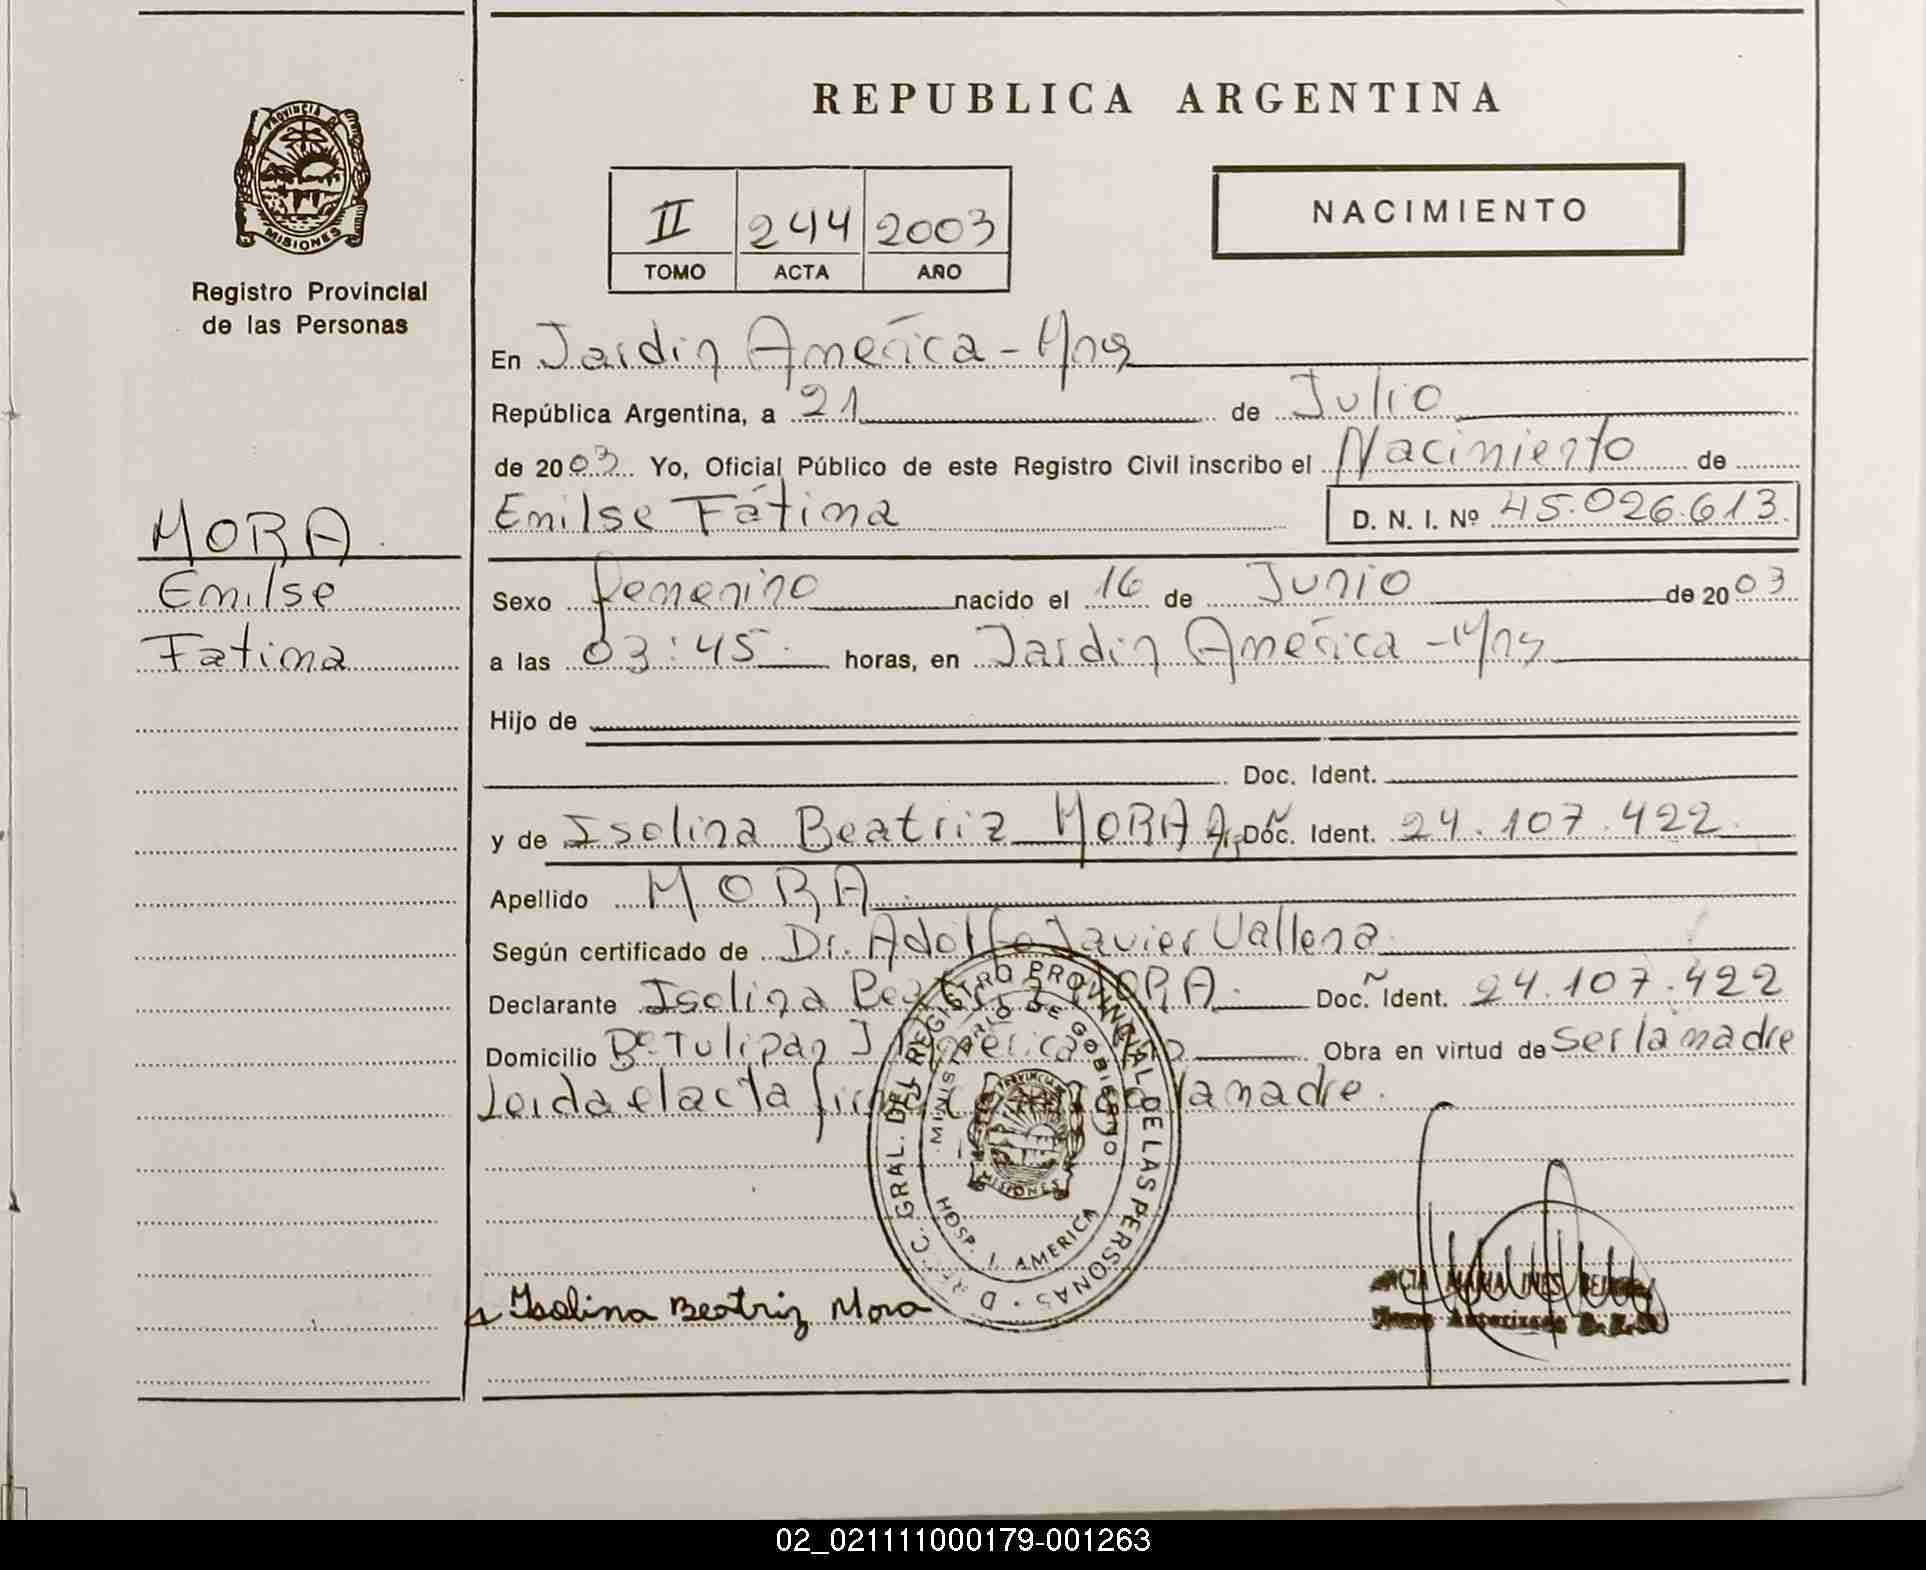 PROVINCIA DE
MISIONES
Registro Provincial
de las Personas
MORA
Emilse
Fatima
REPUBLICA ARGENTINA
II 244 2003
TOMO ACTA AÑO
NACIMIENTO
En Jardin América - Mnes
República Argentina, a 21 de Julio
de 2003 Yo, Oficial Público de este Registro Civil inscribo el Nacimiento de
Emilse Fátima D. N. I. Nº 45.026.613
Sexo femenino nacido el 16 de Junio de 2003
a las 03:45 horas, en Jardin América - Mnes
Hijo de
Doc. Ident.
y de Isolina Beatriz MORA Doc. Ident. 24.107.422
Apellido MORA
Según certificado de Dr. Adolfo Javier Vallena
Declarante Isolina Beatriz MORA Doc. Ident. 24.107.422
Domicilio Bº Tulipan J América Obra en virtud de ser la madre
Leida el acta la madre.
D. REC. GRAL. DEL REGISTRO PROVINCIAL DE LAS PERSONAS
MINISTERIO DE GOBIERNO
PROVINCIA DE
MISIONES
HOSP. J. AMERICA
Isolina Beatriz Mora
MARIA INES
Autorizada
02_021111000179-001263